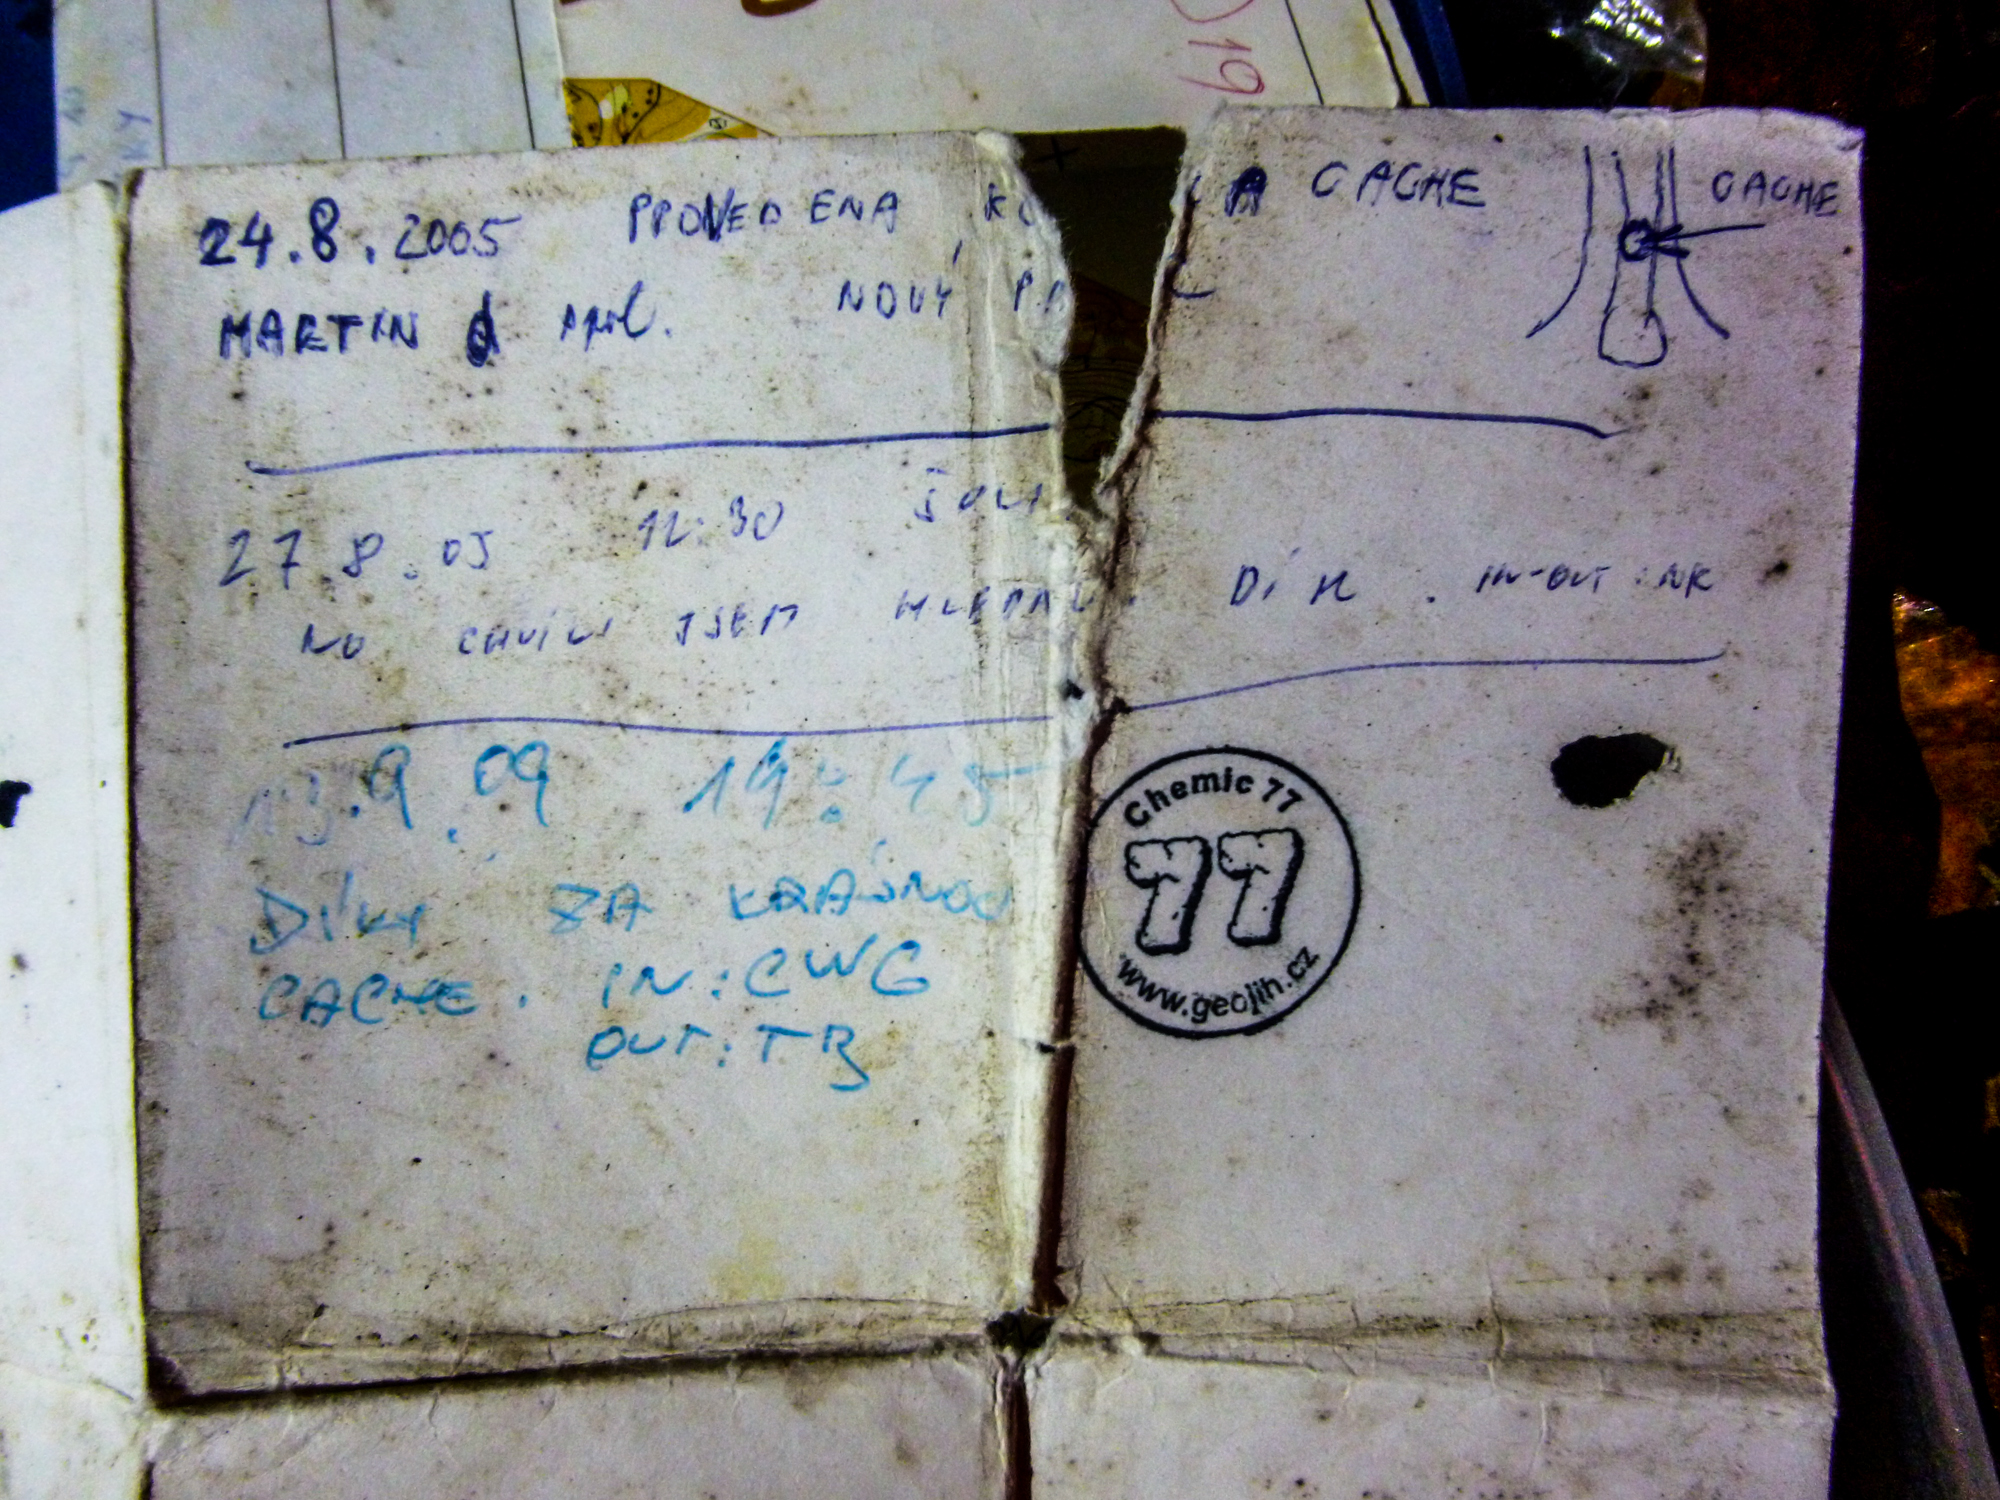 D19
24.8.2005 PROVEDENA CACHE
CACHE
MARTIN NOVÝ
27.8.05 12:30
NO CHVÍLI JSEM HLEDAL. DÍK. IN-OUT:NK
13.9.09 19:45
DÍKY ZA KRÁSNOU
CACHE. IN:CWG
OUT:TB
Chemic 77
77
www.geojih.cz